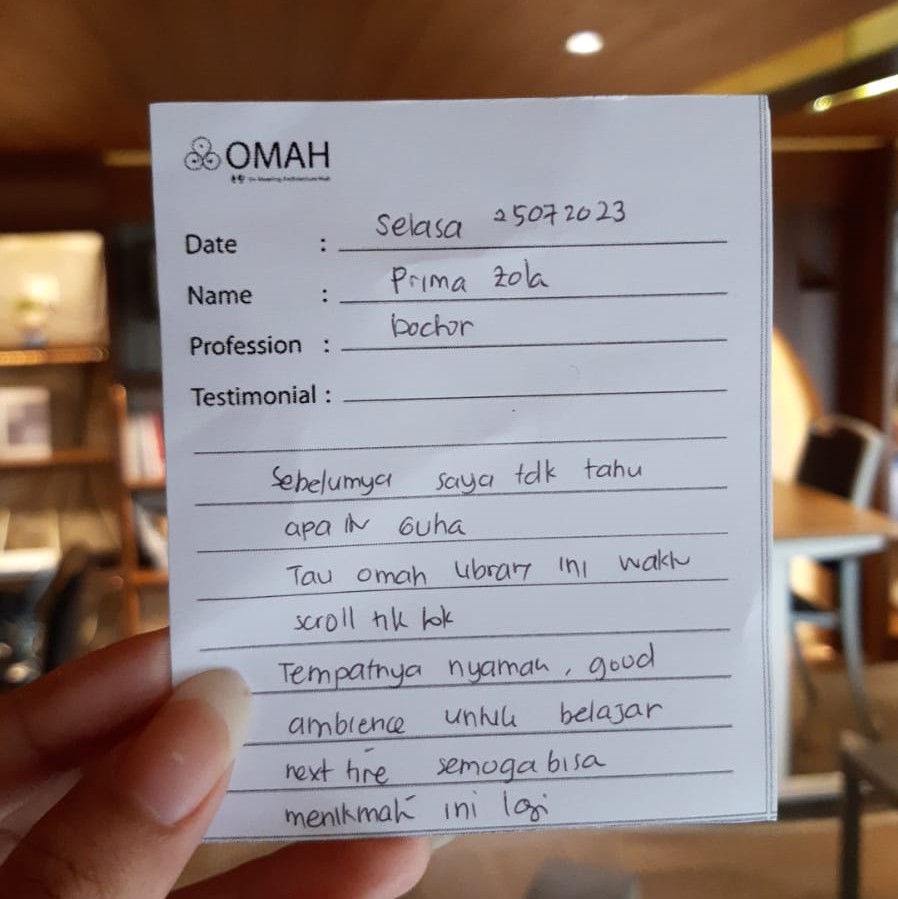 OMAH
Date : Selasa 25072023
Name : Prima Zola
Profession : Doctor
Testimonial :
Sebelumya saya tdk tahu
apa itu Guha
Tau omah library ini waktu
scroll tik tok
Tempatnya nyaman, good
ambience untuk belajar
next time semoga bisa
menikmati ini lagi